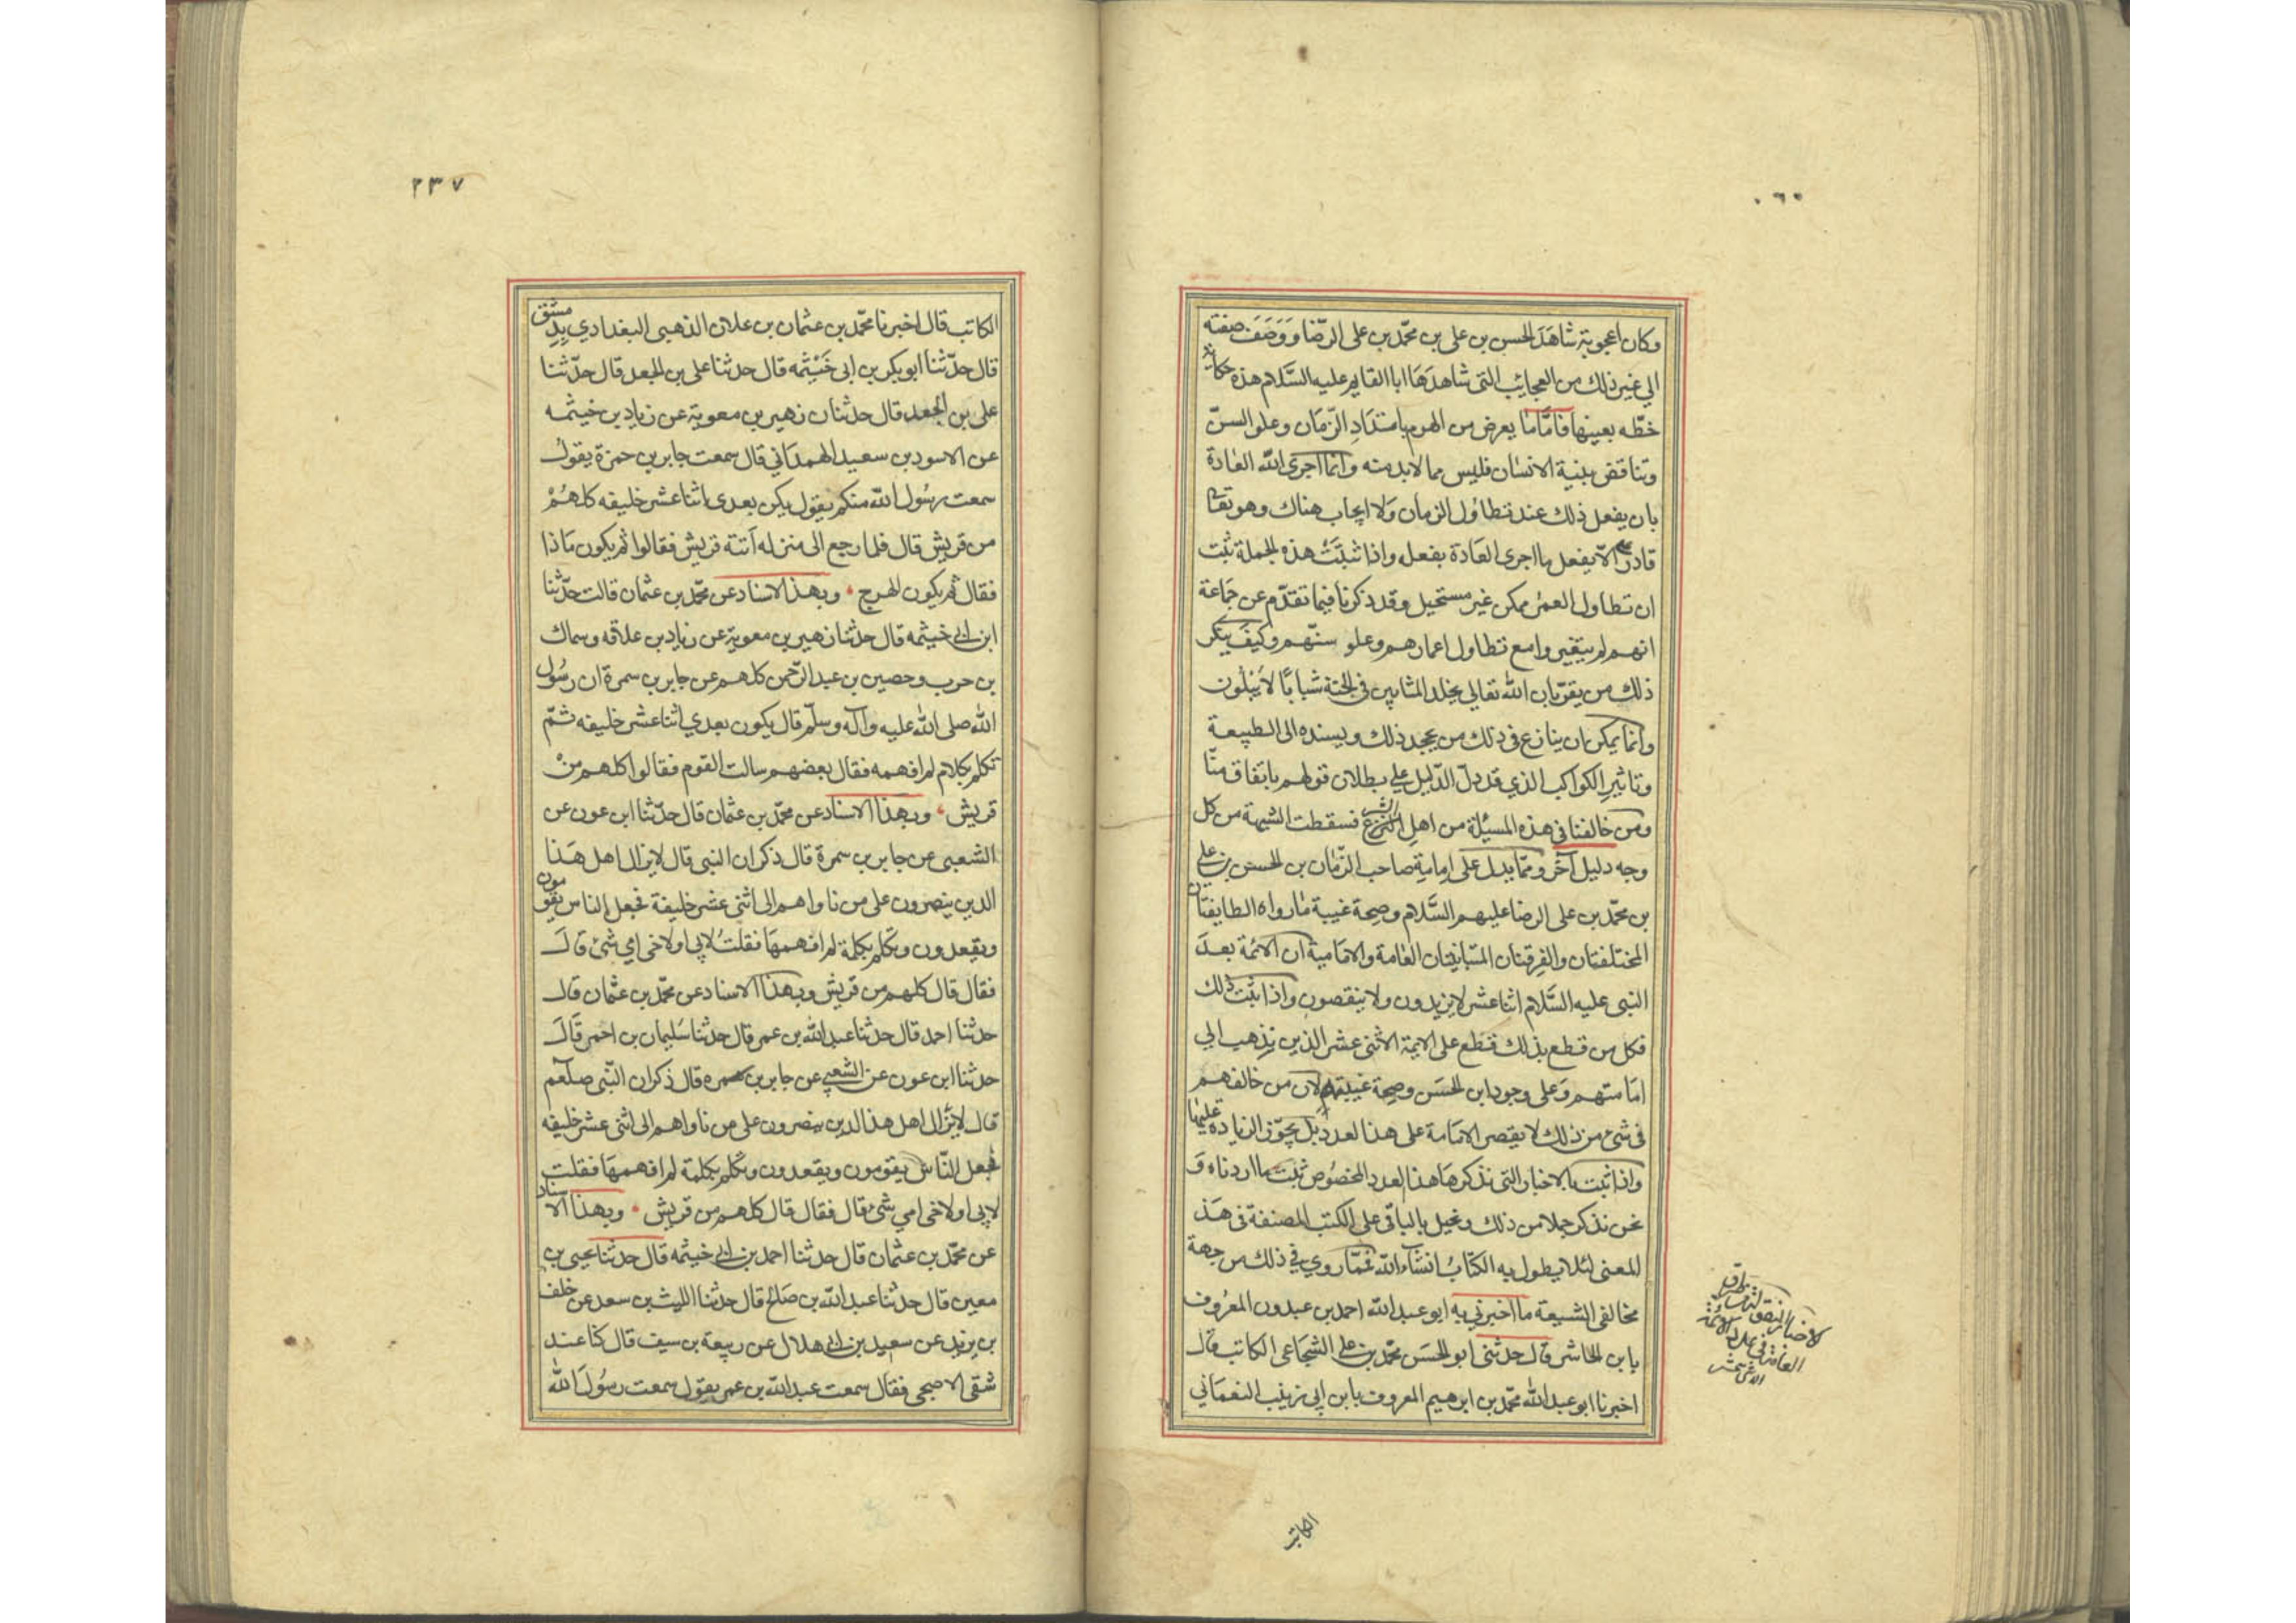 ٠٦٠
وكان اعجوبة شاهد الحسن بن على بن محمّد بن على الرّضا ووصف صفته
الي غير ذلك من العجائب التي شاهدها ابا القايم عليه السّلام هذه حكاية
خطّه بعينها فامّا ما يعرض من الهرم بامتداد الزّمان وعلو السنّ
وتناقض بنية الانسان فليس مما لابد منه وانّما اجرى الله العادة
بان يفعل ذلك عند تطاول الزمان ولا ايجاب هناك وهو تعالى
قادر الّا يفعل ما اجرى العادة بفعله واذا ثبتت هذه الجملة ثبت
ان تطاول العمر ممكن غير مستحيل وقد ذكرنا فيما تقدّم عن جماعة
انهم لم يتغيروا مع تطاول اعمارهم وعلو سنّهم وكيف ينكر
ذلك من يقرّ بان الله تعالي يخلد المثابين في الجنة شبابًا لا يبلون
وانما يمكن ان ينازع في ذلك من يجحد ذلك ويسنده الى الطبيعة
وتاثير الكواكب الذي قد دلّ الدّليل علي بطلان قولهم باتفاق منّا
ومن خالفنا في هذه المسئلة من اهل الشرع فسقطت الشبهة من كل
وجه دليل آخر وممّا يدل على امامة صاحب الزّمان بن الحسن بن علي
بن محمّد بن على الرضا عليهم السَّلام وصحة غيبة ما رواه الطايفتان
المختلفتان والفرقتان المتباينتان العامة والاماميّة ان الائمة بعد
النبى عليه السَّلام اثنا عشر لا يزيدون ولا ينقصون واذا ثبت ذلك
فكل من قطع بذلك قطع على الايمة الاثنى عشر الذين نذهب الي
امامتهم وعلى وجود ابن الحسَن وصحة غيبته لان من خالفهم
فى شئ من ذلك لا يقصر الامامة على هذا العدد بل يجوّز الزيادة عليها
واذا ثبت بالاخبار التي نذكرها هذا العدد المخصُوص ثبت ما اردناه و
نحن نذكر جملا من ذلك ونحيل بالباقي على الكتب المصنفة في هذ
المعنى لئلا يطول به الكتاب انشاء الله فممّا روي في ذلك من جهة
مخالفي الشيعة ما اخبرني به ابو عبد الله احمد بن عبدون المعرُوف
بابن الحاشر قال حدثنى ابو الحسَن محمّد بن علي الشجاعى الكاتب قال
اخبرنا ابو عبد الله محمّد بن ابرهيم المعروف بابن ابى زينب النعماني
الكاتب
٢٣٧
الكاتب قال اخبرنا محمّد بن عثمان بن علان الذهبى البغدادي بدمشق
قال حدّثنا ابو بكر بن ابى خَيْثمه قال حدثنا على بن الجعد قال حدّثنا
على بن الجعد قال حدثنان زهير بن معوية عن زياد بن خيثمه
عن الاسود بن سعيد الهمداني قال سمعت جابر بن حمزة يقول
سمعت رسُول الله منكم يقول يكن بعدى اثنا عشر خليفه كلهمْ
من قريش قال فلما رجع الى منزله اتته قريش فقالوا ثم يكون ماذا
فقال ثم يكون الهرج وبهذا الاسناد عن محمّد بن عثمان قالت حدّثنا
ابن ابي خيثمه قال حدثنا زهير بن معوية عن زياد بن علاقه وسماك
بن حرب وحصين بن عبد الرّحمن كلهم عن جابر بن سمرة ان رسُول
الله صلى الله عليه وآله وسلّم قال يكون بعدي اثنا عشر خليفه ثمّ
تكلم بكلام لم افهمه فقال بعضهم سالت القوم فقالوا كلهم منْ
قريش وبهذا الاسناد عن محمّد بن عثمان قال حدّثنا ابن عون عن
الشعبي عن جابر بن سمرة قال ذكر ان النبي قال لا يزال اهل هَذا
الدين ينصرون على من ناواهم الى اثنى عشر خليفة فجعل الناس يقومون
ويقعدون وتكلم بكلمة لم افهمها فقلتُ لابى او لاخى اى شئ قالَ
فقال قال كلهم من قريش وبهذا الاسناد عن محمّد بن عثمان قال
حدثنا احمد قال حدثنا عبد الله بن عمر قال حدثنا سُليمان بن احمر قالَ
حدثنا ابن عون عن الشعبي عن جابر بن سمره قال ذكر ان النّبى صلعم
قال لا يزال اهل هذا الدين ينصرون على من ناواهم الى اثنى عشر خليفه
فجعل النّاس يقومون ويقعدون وتكلم بكلمة لم افهمها فقلت
لابى او لاخى اى شئ قال فقال قال كلهم من قريش وبهذا الاسناد
عن محمّد بن عثمان قال حدثنا احمد بن ابي خيثمه قال حدثنا يحيى بن
معين قال حدثنا عبد الله بن صَالح قال حدثنا الليث بن سعد عن خلف
بن يزيد عن سعيد بن ابي هلال عن ربيعة بن سيف قال كنا عند
شفى الاصبحى فقال سمعت عبد الله بن عمر يقول سمعت رسُول الله